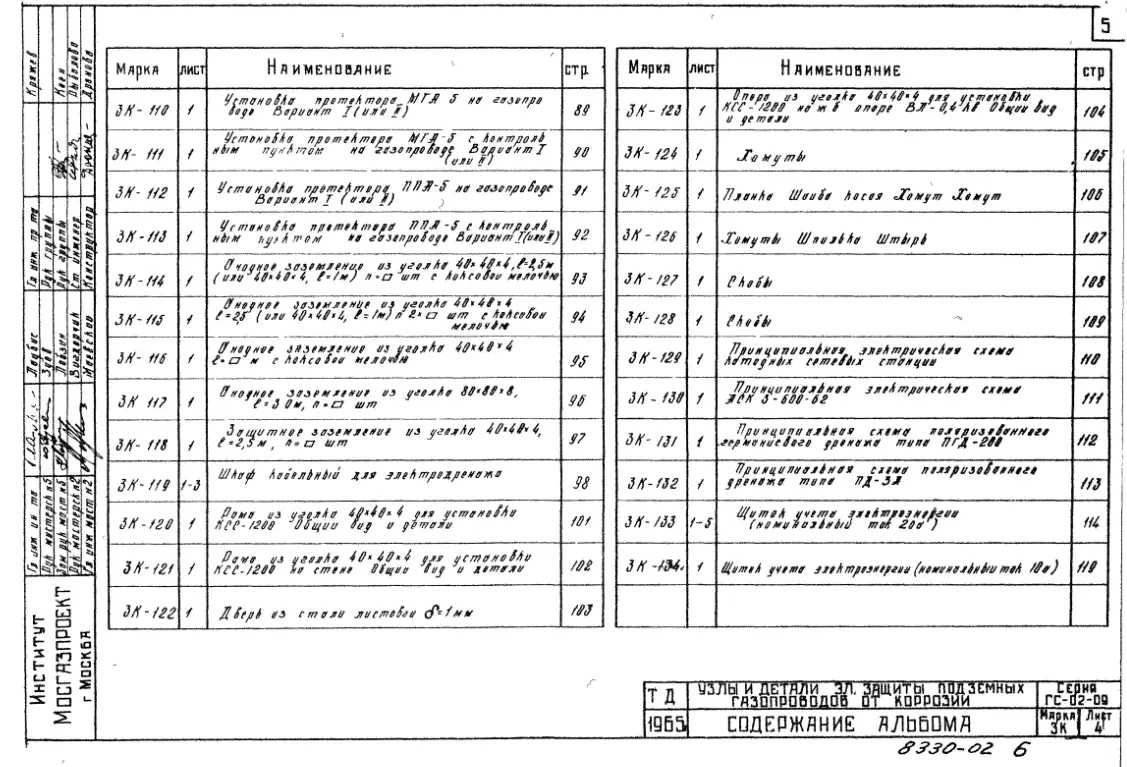 5
Марка лист Наименование стр.
ЗК-110 1 Установка протектора МГА 5 на газопро
воде Вариант I (или II) 89
ЗК-111 1 Установка протектора МГА-5 с контроль
ным пунктом на газопроводе Вариант I
(или II) 90
ЗК-112 1 Установка протектора ППА-5 на газопроводе
Вариант I (или II) 91
ЗК-113 1 Установка протектора ППА-5 с контроль
ным пунктом на газопроводе Вариант I (или II) 92
ЗК-114 1 Анодное заземление из уголка 40×40×4, ℓ=2,5м
(или 40×40×4, ℓ=1м) n=□ шт с коксовой мелочью 93
ЗК-115 1 Анодное заземление из уголка 40×40×4
ℓ=2,5 (или 40×40×4, ℓ=1м) n=□ шт с коксовой
мелочью 94
ЗК-116 1 Анодное заземление из уголка 40×40×4
ℓ=□ м с коксовой мелочью 95
ЗК 117 1 Анодное заземление из уголка 80×80×8,
ℓ=3.0м, n=□ шт 96
ЗК-118 1 Защитное заземление из уголка 40×40×4,
ℓ=2,5м, n=□ шт 97
ЗК-119 1-3 Шкаф кабельный для электродренажа 98
ЗК-120 1 Рама из уголка 40×40×4 для установки
КСС-1200 Общий вид и детали 101
ЗК-121 1 Рама из уголка 40×40×4 для установки
КСС-1200 на стене Общий вид и детали 102
ЗК-122 1 Дверь из стали листовой δ=1мм 103
Марка лист Наименование стр
ЗК-123 1 Опора из уголка 40×40×4 для установки
КСС-1200 на ж б опоре ВЛ-0,4 кв Общий вид
и детали 104
ЗК-124 1 Хомуты 105
ЗК-125 1 Планка Шайба косая Хомут Хомут 106
ЗК-126 1 Хомуты Шпилька Штырь 107
ЗК-127 1 Скобы 108
ЗК-128 1 Скобы 109
ЗК-129 1 Принципиальная электрическая схема
катодных сетевых станций 110
ЗК-130 1 Принципиальная электрическая схема
АСК 5-600-62 111
ЗК-131 1 Принципиальная схема поляризованного
германиевого дренажа типа ПГД-200 112
ЗК-132 1 Принципиальная схема поляризованного
дренажа типа ПД-3А 113
ЗК-133 1-5 Щиток учета электроэнергии
(номинальный ток 20а) 114
ЗК-134. 1 Щиток учета электроэнергии (номинальный ток 10а) 119
Кряжев
Коен
Гл инж пр та
Рук группы
Рук группы
Ст инженер
Конструктор
Гл инж ин та
Рук мастерск n5
Рук мастерск n2
Гл инж маст n2
Институт
МОСГАЗПРОЕКТ
г Москва
ТД Узлы и детали эл. защиты подземных
газопроводов от коррозии Серия
ГС-02-09
1965 Содержание альбома Марка
ЗК Лист
4
8330-02 6